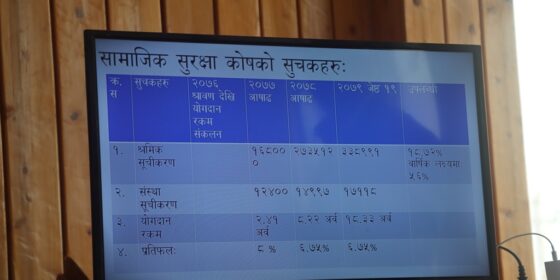 सामाजिक सुरक्षा कोषको सुचकहरुः
क्र.स सुचकहरु २०७६ श्रावण देखि योगदान रकम संकलन २०७७ आषाढ २०७८ आषाढ २०७९ जेष्ठ १९ उपलब्धी
१. श्रमिक सूचीकरण १६८००० २७३५१२ ३३८९९१ १८.७२% वार्षिक लक्ष्यमा ५६%
२. संस्था सूचीकरण १२४०० १४९९७ १७११८
३. योगदान रकम २.४१ अर्व ८.२२ अर्व १८.३३ अर्व
४. प्रतिफलः ८ % ६.७५% ६.७५%